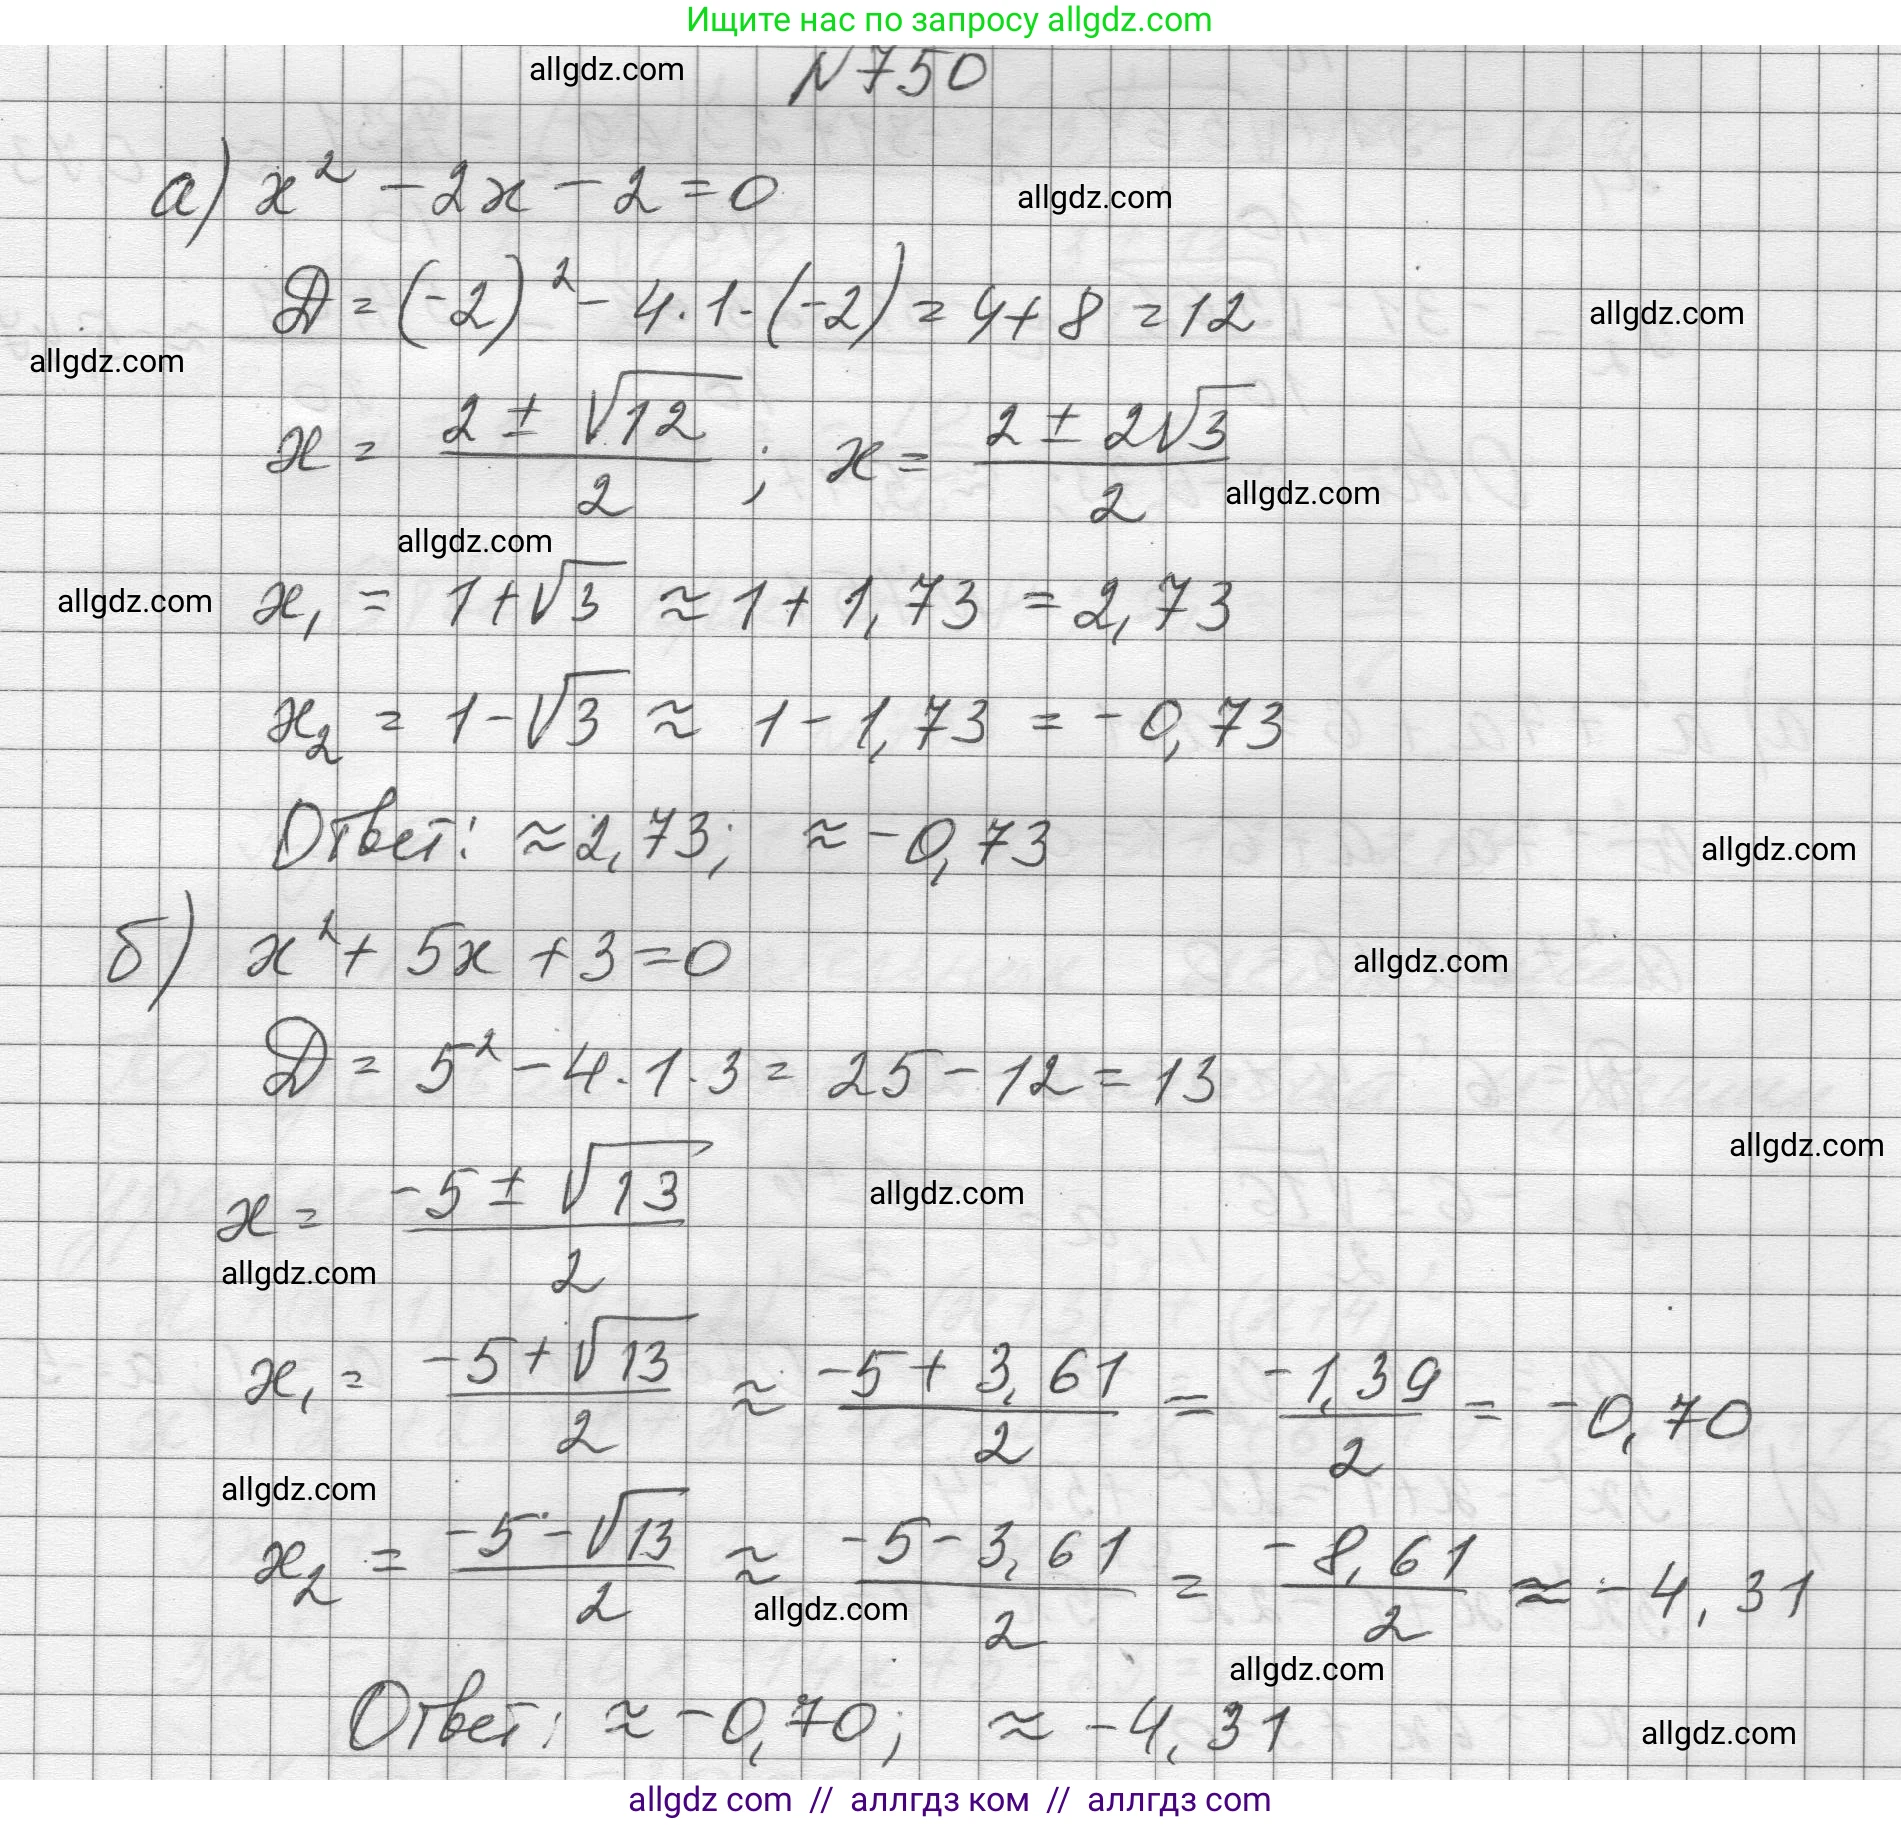 Ищите нас по запросу allgdz.com
allgdz.com N 750
а) x² - 2x - 2 = 0 allgdz.com
D = (-2)² - 4·1·(-2) = 4 + 8 = 12 allgdz.com
allgdz.com
x = (2 ± √12)/2 ; x = (2 ± 2√3)/2 allgdz.com
allgdz.com
allgdz.com x₁ = 1 + √3 ≈ 1 + 1,73 = 2,73
x₂ = 1 - √3 ≈ 1 - 1,73 = -0,73
Ответ: ≈ 2,73; ≈ -0,73 allgdz.com
б) x² + 5x + 3 = 0 allgdz.com
D = 5² - 4·1·3 = 25 - 12 = 13
allgdz.com
x = (-5 ± √13)/2 allgdz.com
allgdz.com
x₁ = (-5 + √13)/2 ≈ (-5 + 3,61)/2 = (-1,39)/2 = -0,70
allgdz.com
x₂ = (-5 - √13)/2 ≈ (-5 - 3,61)/2 = (-8,61)/2 ≈ -4,31
allgdz.com
allgdz.com
Ответ: ≈ -0,70; ≈ -4,31 allgdz.com
allgdz com // аллгдз ком // аллгдз com